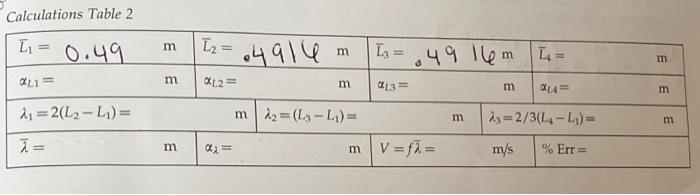 Calculations Table 2
L̄₁ = 0.49 m L̄₂ = .4916 m L̄₃ = .4916 m L̄₄ = m
α_L1 = m α_L2 = m α_L3 = m α_L4 = m
λ₁ = 2(L₂ − L₁) = m λ₂ = (L₃ − L₁) = m λ₃ = 2/3(L₄ − L₁) = m
λ̄ = m α_λ = m V = fλ̄ = m/s % Err =